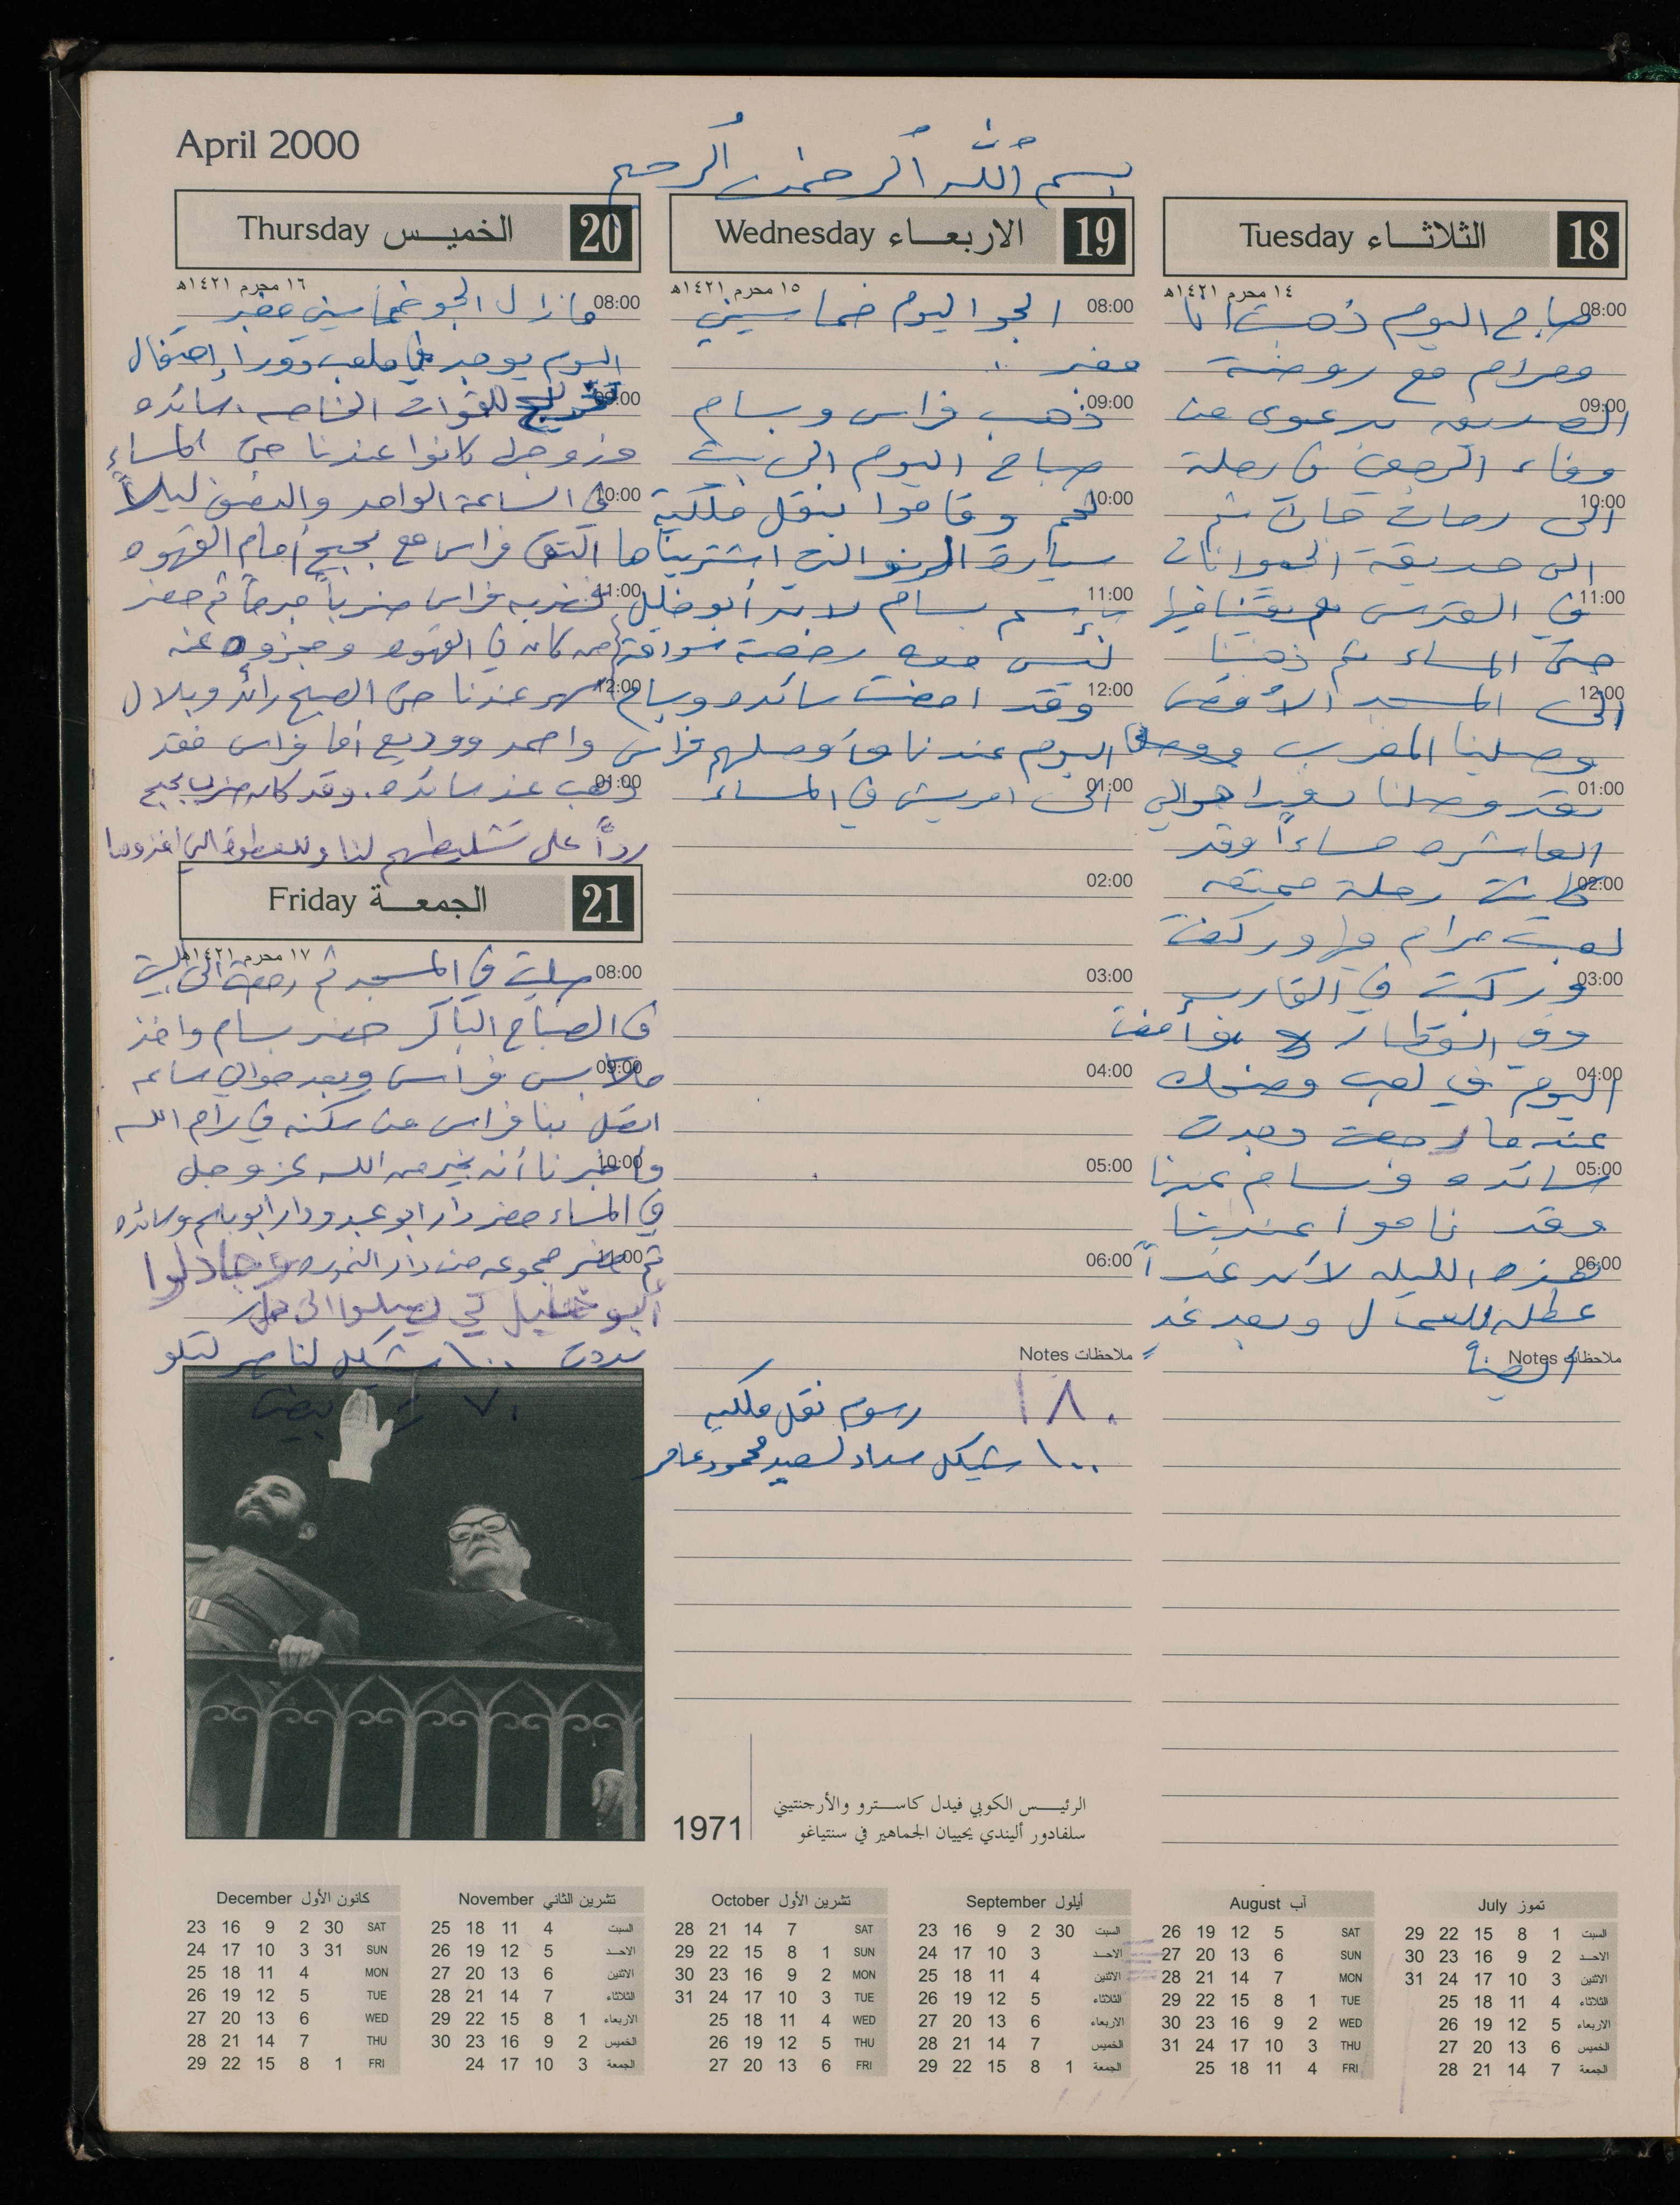 April 2000
بسم الله الرحمن الرحيم
18 الثلاثاء Tuesday
١٤ محرم ١٤٢١هـ
08:00 صباح اليوم ذهبت انا
ومرام مع روضة
09:00 الصديق بدعوى من
وفاء الرجعي في رحلة
10:00 الى رمات جان ثم
الى حديقة الحيوانات
11:00 في القدس بقينا فيها
حتى المساء ثم ذهبنا
12:00 الى المسجد الأقصى
وصلينا المغرب
01:00 بعد وصلنا سعيرا حوالي
العاشره مساءاً وقد
02:00 كانت رحلة ممتعه
لعبت مرام فيها وركضت
03:00 وركبت في القارب
وفي القطار وأمضت
04:00 اليوم في لعب وضحك
عندما رجعت وجدت
05:00 سائده وبسام عندنا
وقد ناموا عندنا
06:00 هذه الليله لأن غداً
عطله للعمال وبعد غدٍ
ملاحظات Notes
أيضاً
19 الاربعاء Wednesday
١٥ محرم ١٤٢١هـ
08:00 الجو اليوم خماسيني
مغبر ..
09:00 ذهب فراس وبسام
صباح اليوم الى بيت
10:00 لحم وقاموا بنقل ملكية
سيارة الرنو التي اشتريناها
11:00 بإسم بسام لان أبو خليل
ليس معه رخصة سواقة
12:00 وقد امضت سائده وبسام
اليوم عندنا وأوصلهم فراس
01:00 الى امريش في المساء
02:00
03:00
04:00
05:00
06:00
ملاحظات Notes
١٨٠ رسوم نقل ملكيه
١٠٠ شيكل سداد لسعيد محمود عامر
20 الخميس Thursday
١٦ محرم ١٤٢١هـ
08:00 مازال الجو خماسيني مغبر
اليوم يوجد في ملعب دورا إحتفال
09:00 تخريج للقوات الخاصه. سائده
وزوجها كانوا عندنا حتى المساء
10:00 في الساعة الواحد والنصف ليلاً
التقى فراس مع بحبح أمام القهوه
11:00 فضربه فراس ضرباً مبرحاً ثم حضر
من كان في القهوه وحجزوه عنه
12:00 سهر عندنا حتى الصبح رائد وبلال
واحمد ووديع أما فراس فقد
01:00 ذهب عند سائده. وقد كان ضرب بحبح
رداً على تشليطهم لنا وللعطوة التي أخذوها
21 الجمعة Friday
١٧ محرم ١٤٢١هـ
08:00 صليت في المسجد ثم رجعت الى البيت
في الصباح الباكر حضر بسام واخذ
09:00 ملابس فراس وبعد حوالي ساعه
اتصل بنا فراس من سكنه في رام الله
10:00 وأخبرنا أنه بخير من الله عز وجل
في المساء حضر دار ابو عبد ودار ابو باسم وسائده
11:00 ثم حضر مجموعه من دار النموره وجادلوا
أبو خليل كي يصلوا الى حل
سددت ١٠٠ شيكل لناصر
٧٠
1971
الرئيس الكوبي فيدل كاسترو والأرجنتيني
سلفادور أليندي يحييان الجماهير في سنتياغو
تموز July
السبت 1 8 15 22 29
الاحد 2 9 16 23 30
الاثنين 3 10 17 24 31
الثلاثاء 4 11 18 25
الاربعاء 5 12 19 26
الخميس 6 13 20 27
الجمعة 7 14 21 28
آب August
SAT 5 12 19 26
SUN 6 13 20 27
MON 7 14 21 28
TUE 1 8 15 22 29
WED 2 9 16 23 30
THU 3 10 17 24 31
FRI 4 11 18 25
أيلول September
السبت 30 2 9 16 23
الاحد 3 10 17 24
الاثنين 4 11 18 25
الثلاثاء 5 12 19 26
الاربعاء 6 13 20 27
الخميس 7 14 21 28
الجمعة 1 8 15 22 29
تشرين الأول October
SAT 7 14 21 28
SUN 1 8 15 22 29
MON 2 9 16 23 30
TUE 3 10 17 24 31
WED 4 11 18 25
THU 5 12 19 26
FRI 6 13 20 27
تشرين الثاني November
السبت 4 11 18 25
الاحد 5 12 19 26
الاثنين 6 13 20 27
الثلاثاء 7 14 21 28
الاربعاء 1 8 15 22 29
الخميس 2 9 16 23 30
الجمعة 3 10 17 24
كانون الأول December
SAT 30 2 9 16 23
SUN 31 3 10 17 24
MON 4 11 18 25
TUE 5 12 19 26
WED 6 13 20 27
THU 7 14 21 28
FRI 1 8 15 22 29